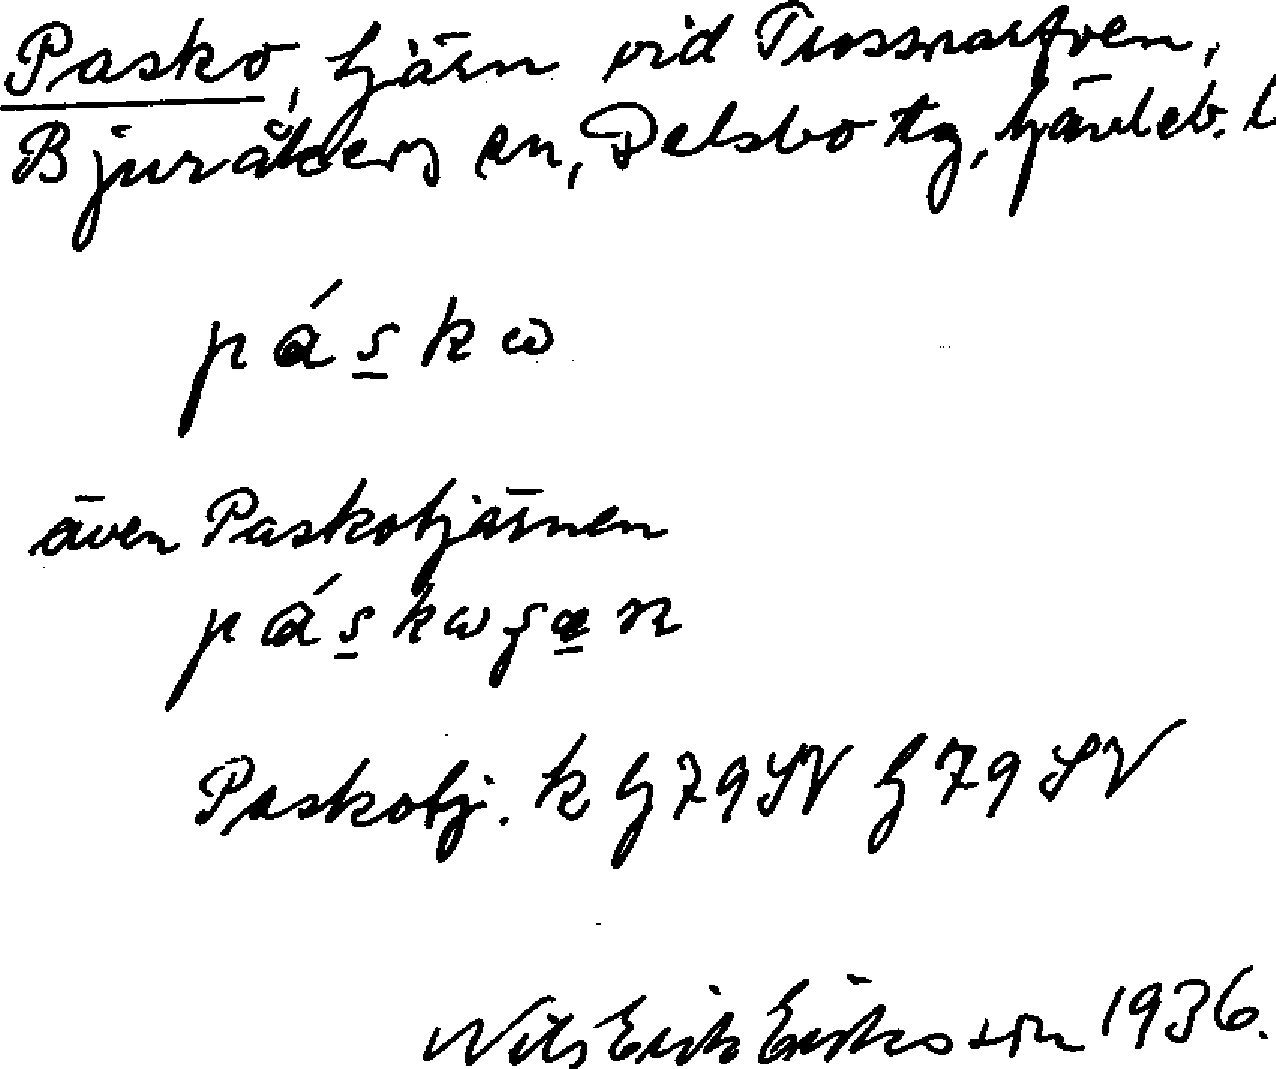 Pasko, tjärn vid Trossnarfven,
Bjuråkers sn, Delsbo tg, Gävleb. l
páskω
även Paskotjärnen
páskωʃæn
Paskotj. k G79SV G79SV
Nils Erik Eriksson 1936.